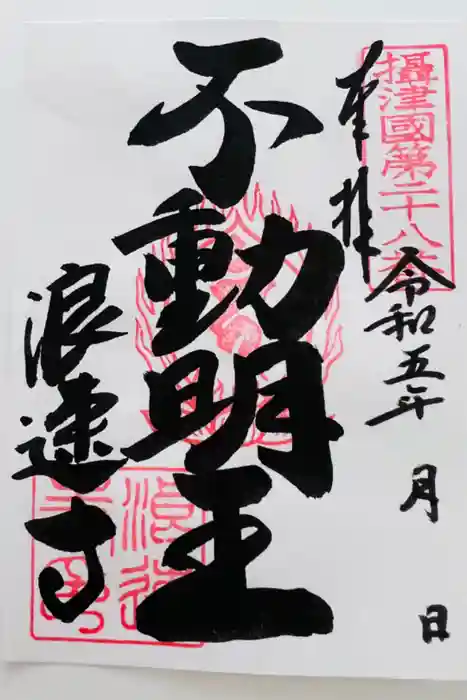 奉拝
攝津國第二十八番
令和五年 月 日
不動明王
浪速寺